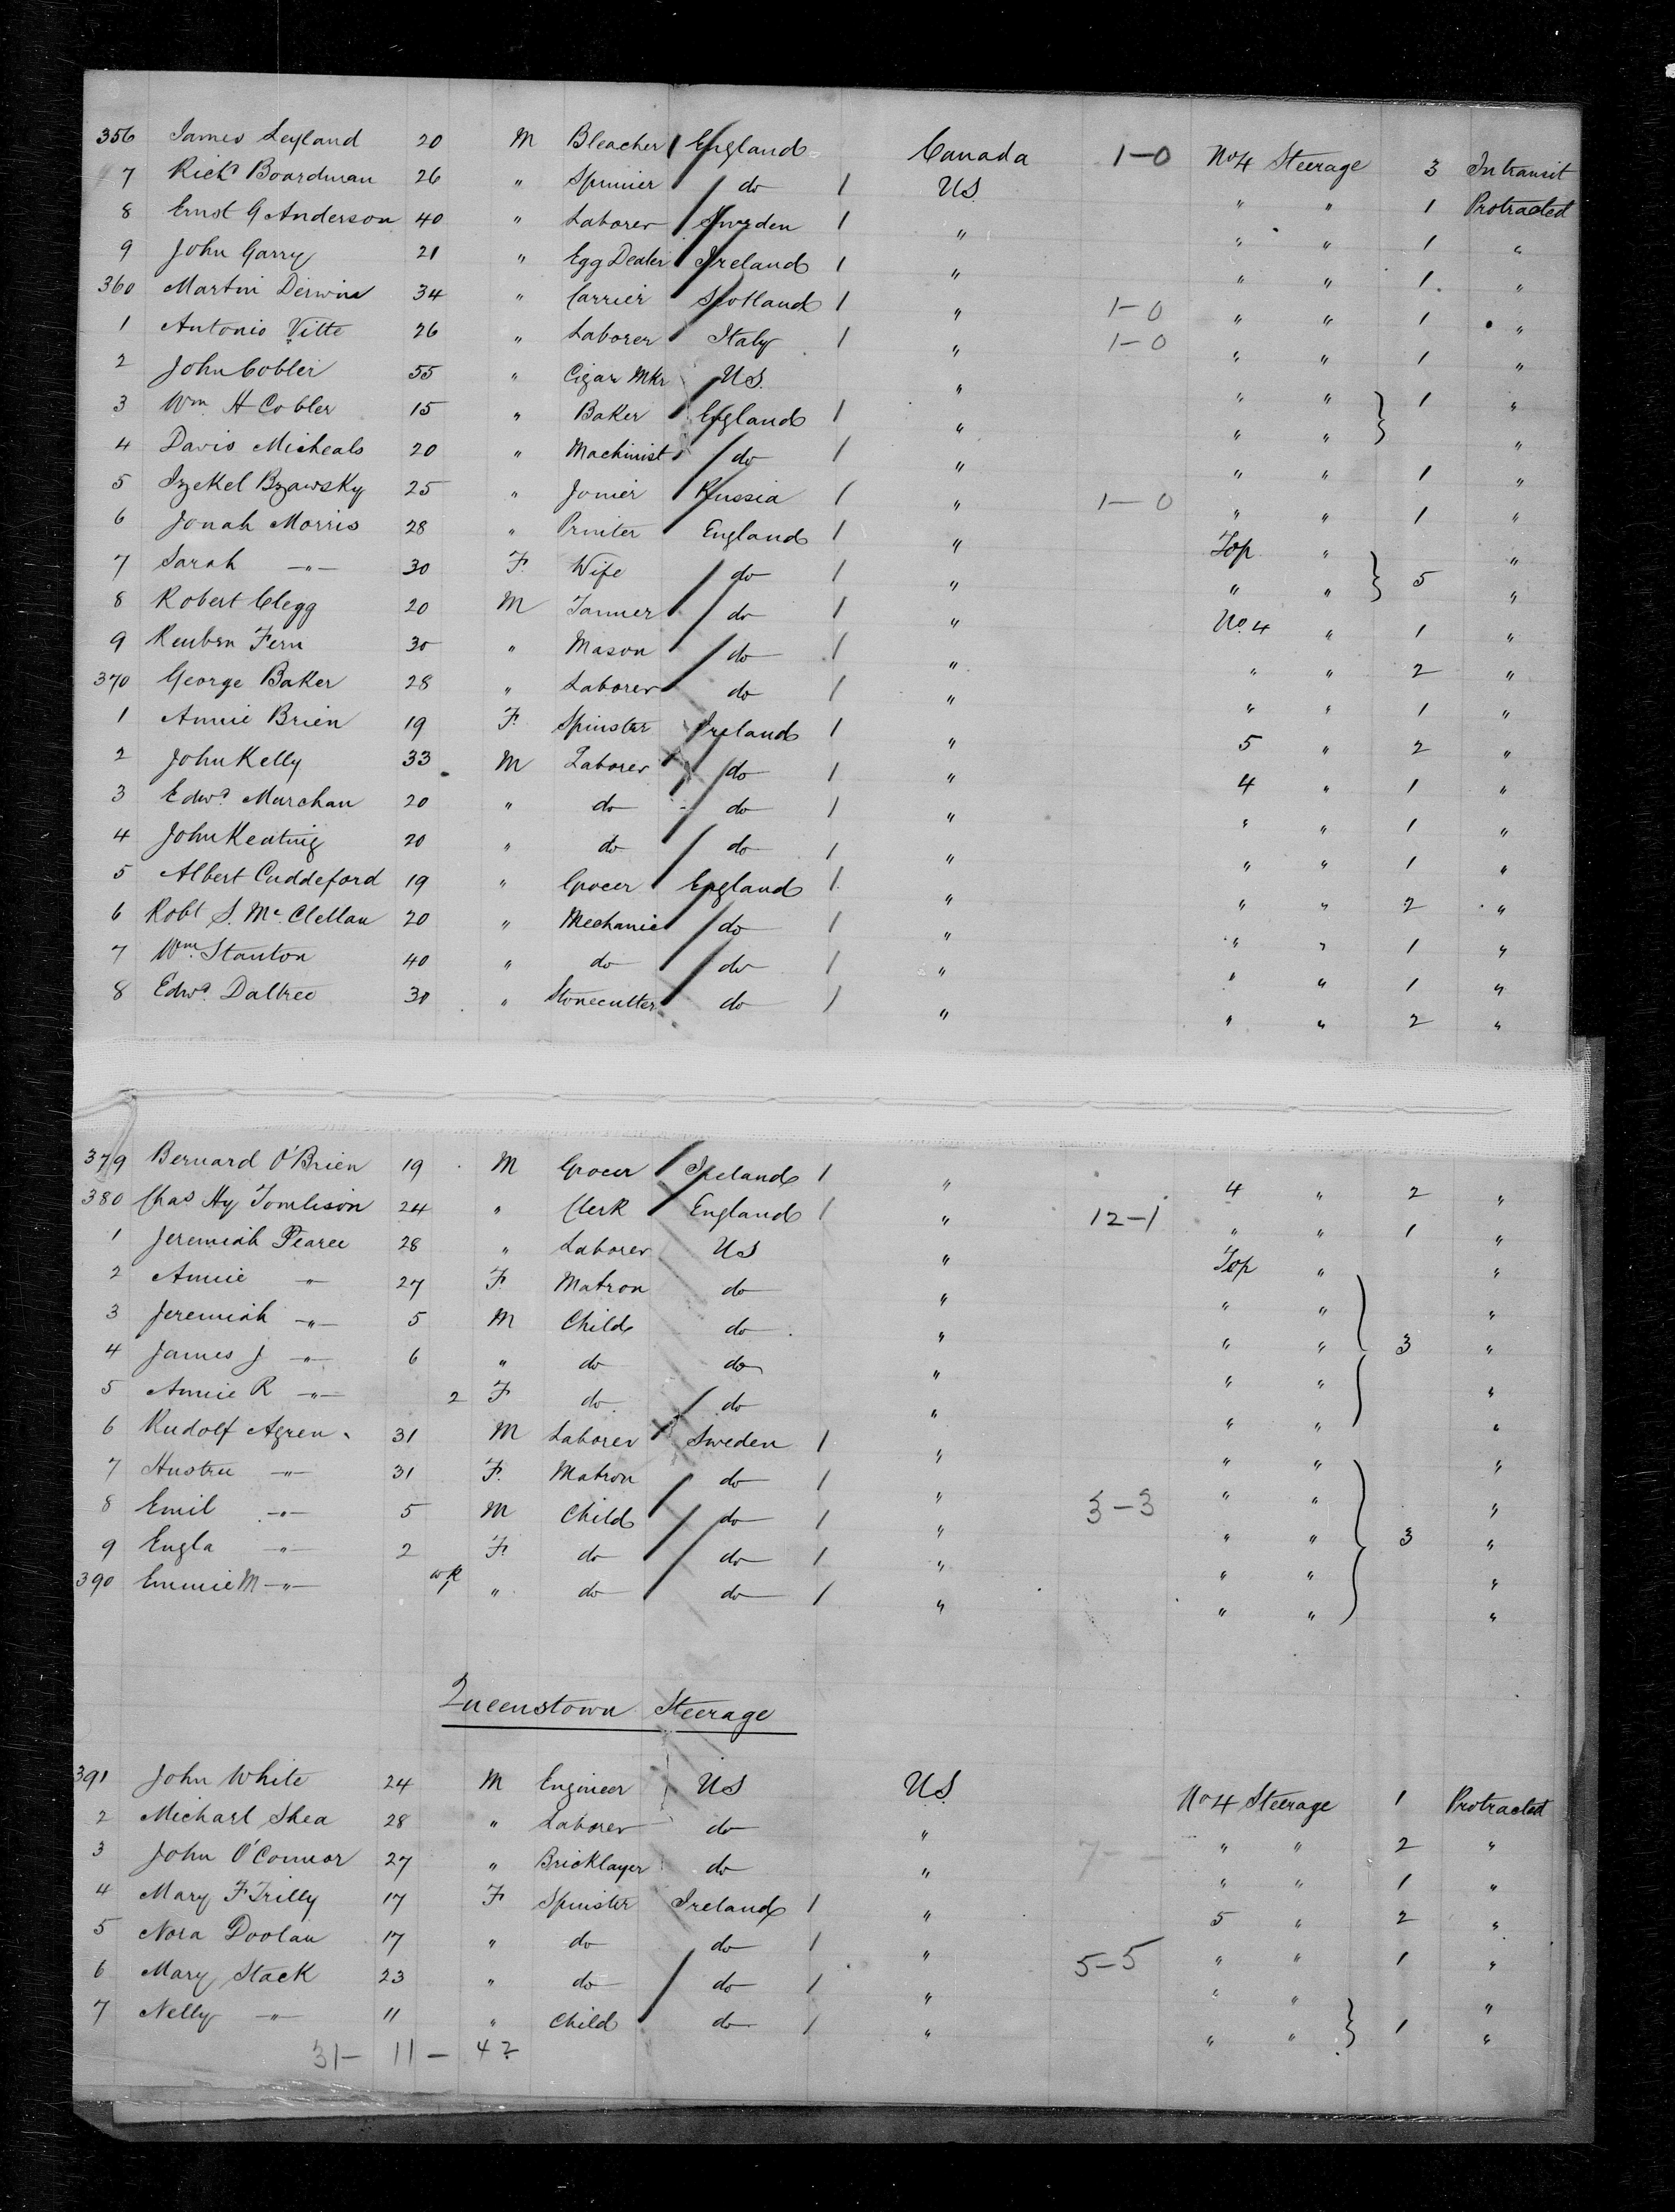 356 James Leyland 20 M Bleacher England Canada 1-0 No 4 Steerage 3 In transit
7 Richd Boardman 26 " Spinner do 1 US. " " 1 Protracted
8 Ernst G Anderson 40 " Laborer Sweden 1 " " " 1 "
9 John Garry 21 " Egg Dealer Ireland 1 " " " 1 "
360 Martin Derwin 34 " Carrier Scotland 1 " 1-0 " " 1 "
1 Antonio Vitte 26 " Laborer Italy 1 " 1-0 " " 1 "
2 John Cobler 55 " Cigar Mkr US. " " " 1 "
3 Wm H Cobler 15 " Baker England 1 " " " "
4 Davis Micheals 20 " Machinist do 1 " " " 1 "
5 Izekel Bzawsky 25 " Joiner Russia 1 " 1-0 " " 1 "
6 Jonah Morris 28 " Printer England 1 " Top " "
7 Sarah -"- 30 F. Wife do 1 " " " 5 "
8 Robert Clegg 20 M Tanner do 1 " No. 4 " 1 "
9 Reuben Fern 30 " Mason do 1 " " " 2 "
370 George Baker 28 " Laborer do 1 " " " 1 "
1 Annie Brien 19 F. Spinster Ireland 1 " 5 " 2 "
2 John Kelly 33 M Laborer do 1 " 4 " 1 "
3 Edwd Murchan 20 " do do 1 " " " 1 "
4 John Keating 20 " do do 1 " " " 1 "
5 Albert Cuddeford 19 " Grocer England 1 " " " 2 "
6 Robt S. Mc Clellan 20 " Mechanic do 1 " " " 1 "
7 Wm. Stanton 40 " do do 1 " " " 1 "
8 Edwd. Daltree 30 " Stonecutter do 1 " " " 2 "
379 Bernard O'Brien 19 M Grocer Ireland 1 " 4 " 2 "
380 Chas Hy Tomlison 24 " Clerk England 1 " 12-1 " " 1 "
1 Jeremiah Pearce 28 " Laborer US " Top " "
2 Annie -"- 27 F. Matron do " " " "
3 Jeremiah -"- 5 M Child do " " " 3 "
4 James J -"- 6 " do do " " " "
5 Annie R -"- 2 F do do " " " "
6 Rudolf Agren 31 M Laborer Sweden 1 " " " "
7 Hustru -"- 31 F. Matron do 1 " " " "
8 Emil -"- 5 M Child do 1 " 3-3 " " 3 "
9 Engla -"- 2 F. do do 1 " " " "
390 Emmie M -"- " do do 1 " " " "
Queenstown Steerage
391 John White 24 M Engineer US US. No 4 Steerage 1 Protracted
2 Michael Shea 28 " Laborer do " " " 2 "
3 John O'Connor 27 " Bricklayer do " 7- " " 1 "
4 Mary F Trilly 17 F Spinster Ireland 1 " 5 " 2 "
5 Nora Doolan 17 " do do 1 " " " 1 "
6 Mary Stack 23 " do do 1 " 5-5 " " "
7 Nelly -"- 11 " Child do 1 " " " 1 "
31- 11- 42